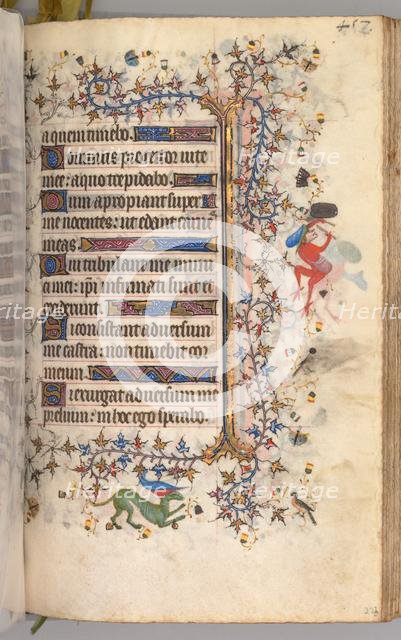 452
a quem timebo.
Dominus protector uite
mee: a quo trepidabo.
Dum apropiant super
me nocentes: ut edant carnes
meas.
Qui tribulant me inimi
ci mei: ipsi infirmati sunt et
ceciderunt.
Si consistant aduersum
me castra: non timebit cor
meum.
Si exurgat aduersum me
prelium: in hoc ego sperabo.
Heritage
Heritage
Heritage
Heritage
Heritage